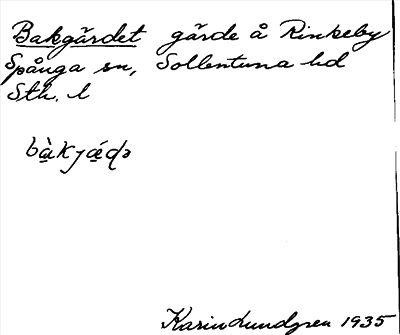 Bakgärdet gärde å Rinkeby
Spånga sn, Sollentuna hd
Sth. l
bàkjǽḍə
Karin Lundgren 1935